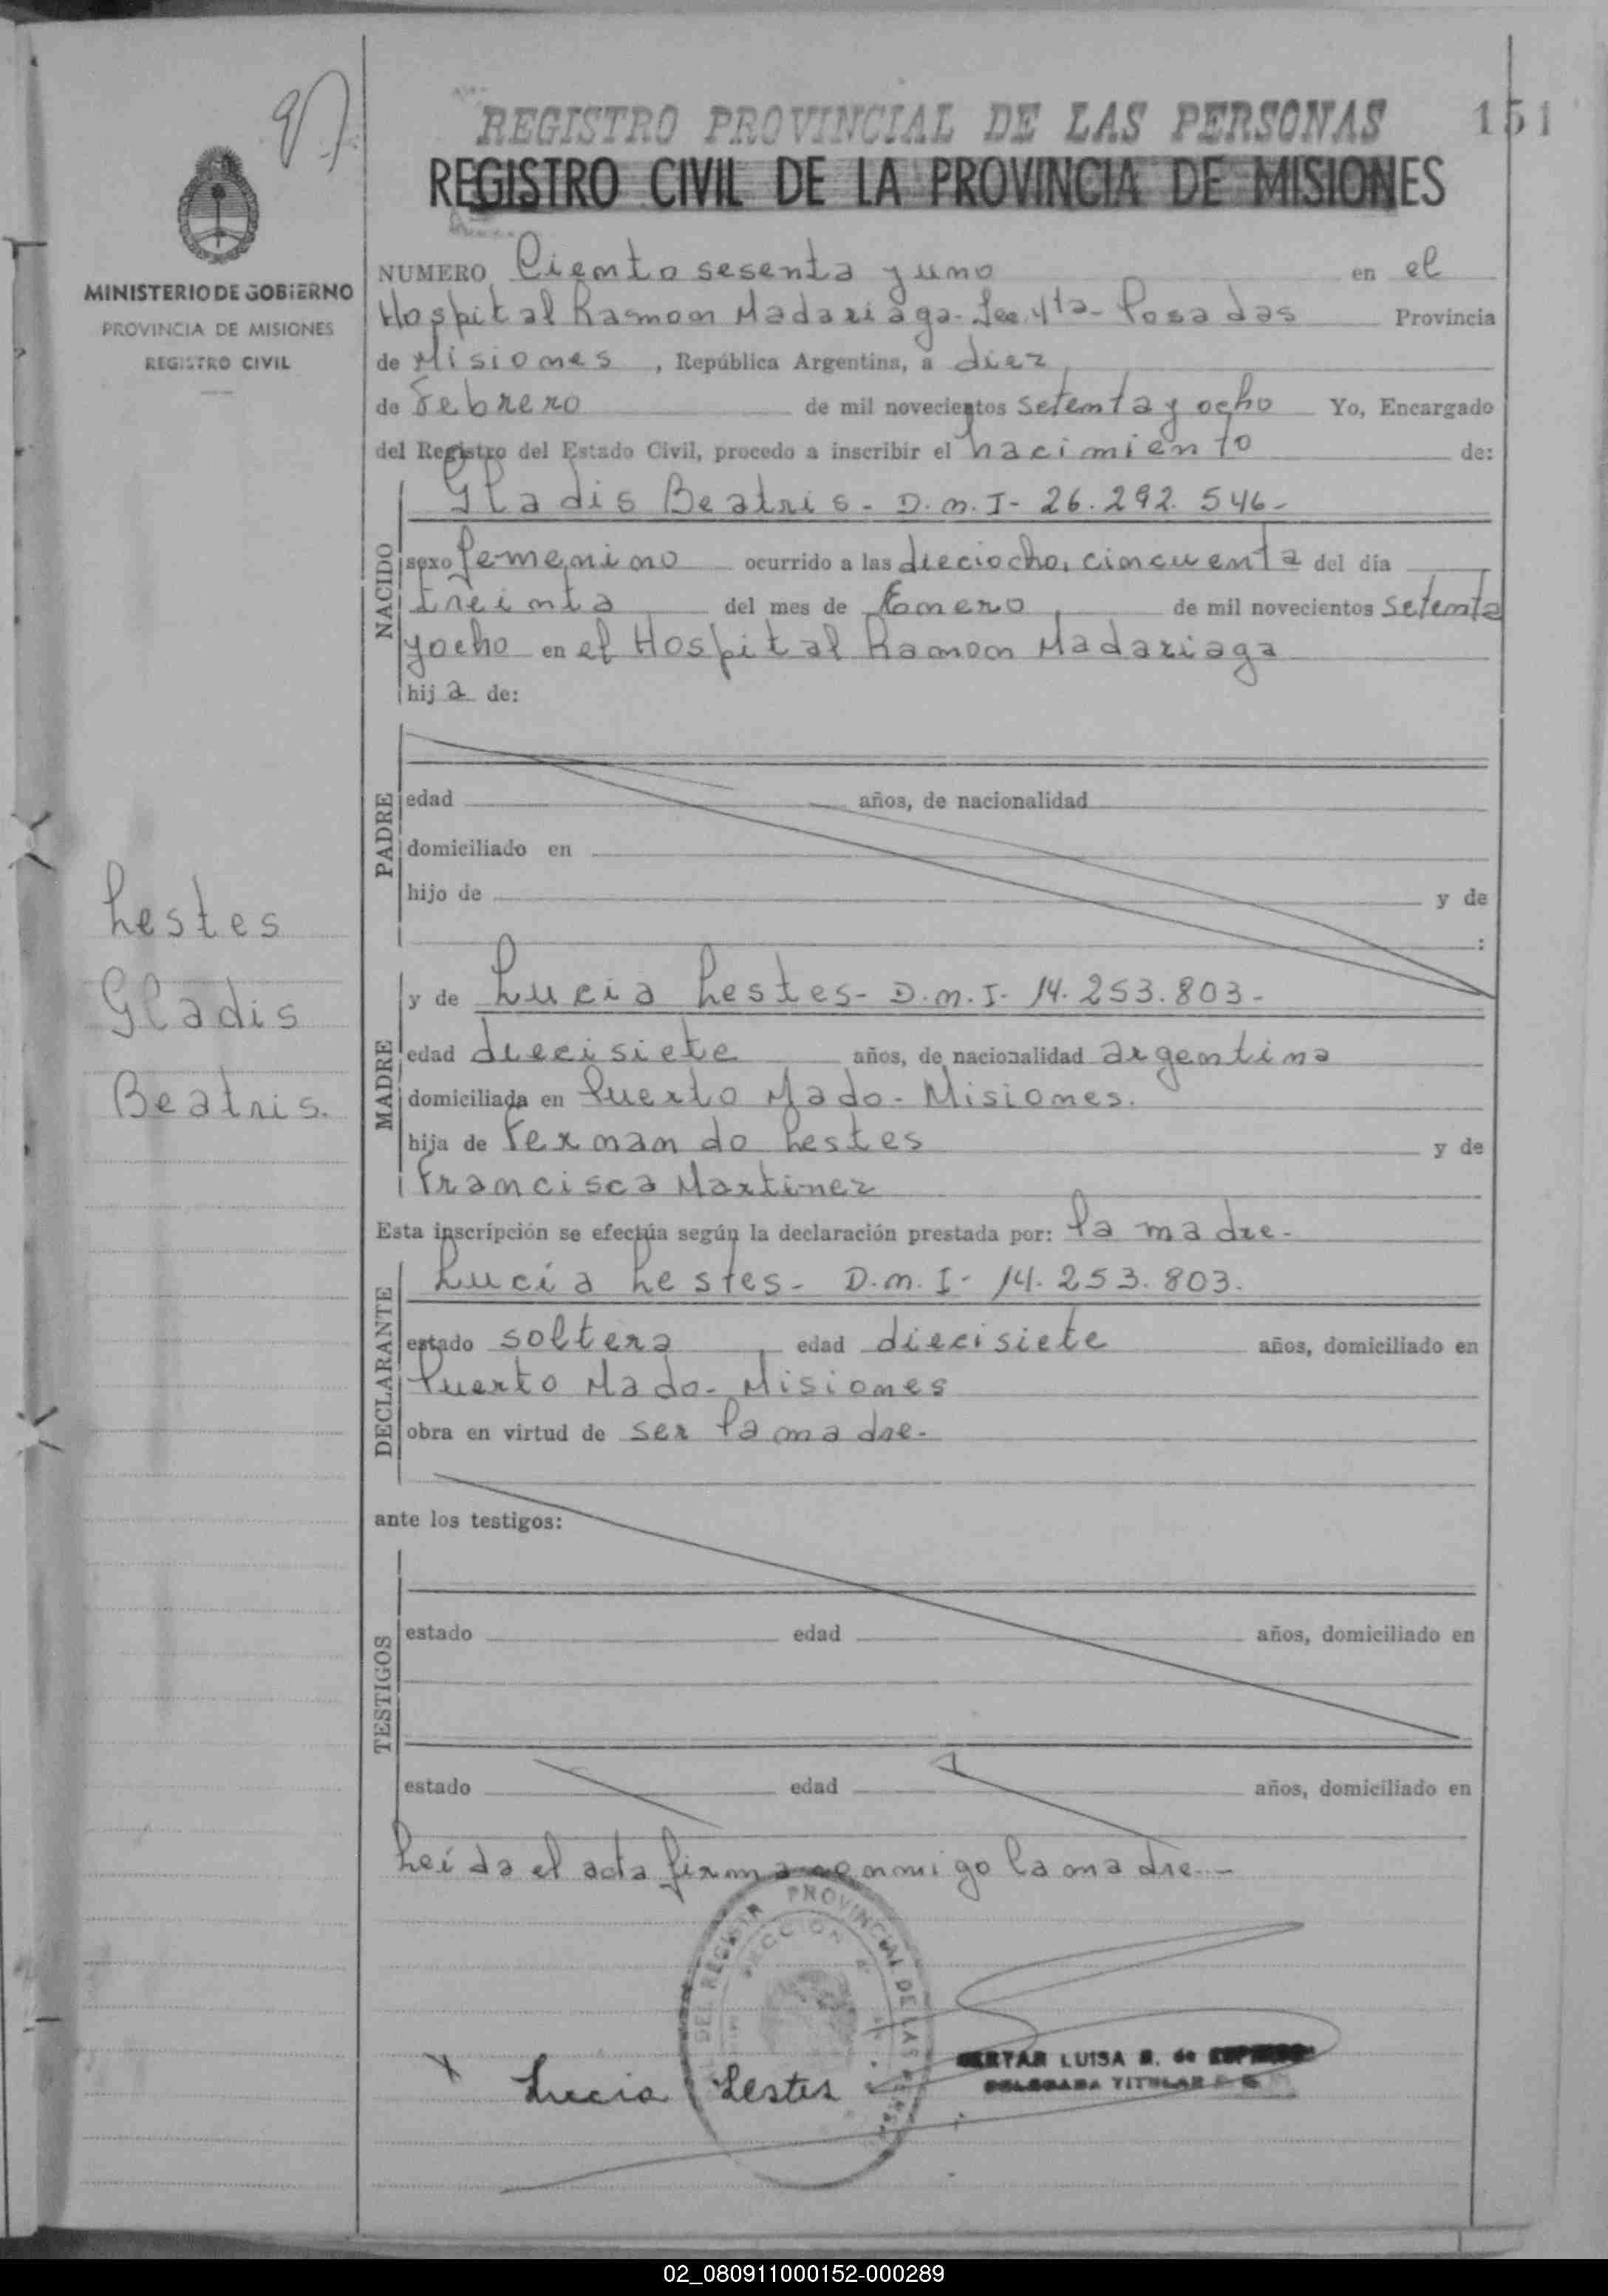 REGISTRO PROVINCIAL DE LAS PERSONAS 151
REGISTRO CIVIL DE LA PROVINCIA DE MISIONES
MINISTERIO DE GOBIERNO
PROVINCIA DE MISIONES
REGISTRO CIVIL
NUMERO Ciento sesenta y uno en el
Hospital Ramon Madariaga - Sec. 4ta - Posadas Provincia
de Misiones, República Argentina, a diez
de Febrero de mil novecientos setenta y ocho Yo, Encargado
del Registro del Estado Civil, procedo a inscribir el nacimiento de:
NACIDO
Gladis Beatris - D.N.I - 26.292.546 -
sexo femenino ocurrido a las dieciocho, cincuenta del día
treinta del mes de Enero de mil novecientos setenta
y ocho en el Hospital Ramon Madariaga
hija de:
PADRE
edad años, de nacionalidad
domiciliado en
hijo de y de
:
Lestes
Gladis
Beatris.
MADRE
y de Lucia Lestes - D.N.I - 14.253.803 -
edad diecisiete años, de nacionalidad argentina
domiciliada en Puerto Mado - Misiones.
hija de Fernando Lestes y de
Francisca Martinez
Esta inscripción se efectúa según la declaración prestada por: la madre -
DECLARANTE
Lucía Lestes - D.N.I - 14.253.803.
estado soltera edad diecisiete años, domiciliado en
Puerto Mado - Misiones
obra en virtud de ser la madre -
ante los testigos:
TESTIGOS
estado edad años, domiciliado en
estado edad años, domiciliado en
Leída el acta firma conmigo la madre -
DEL REGISTR PROVINCIAL DE LAS PERS
SECCION
X Lucia Lestes
LUISA de
DELEGADA TITULAR
02_080911000152-000289